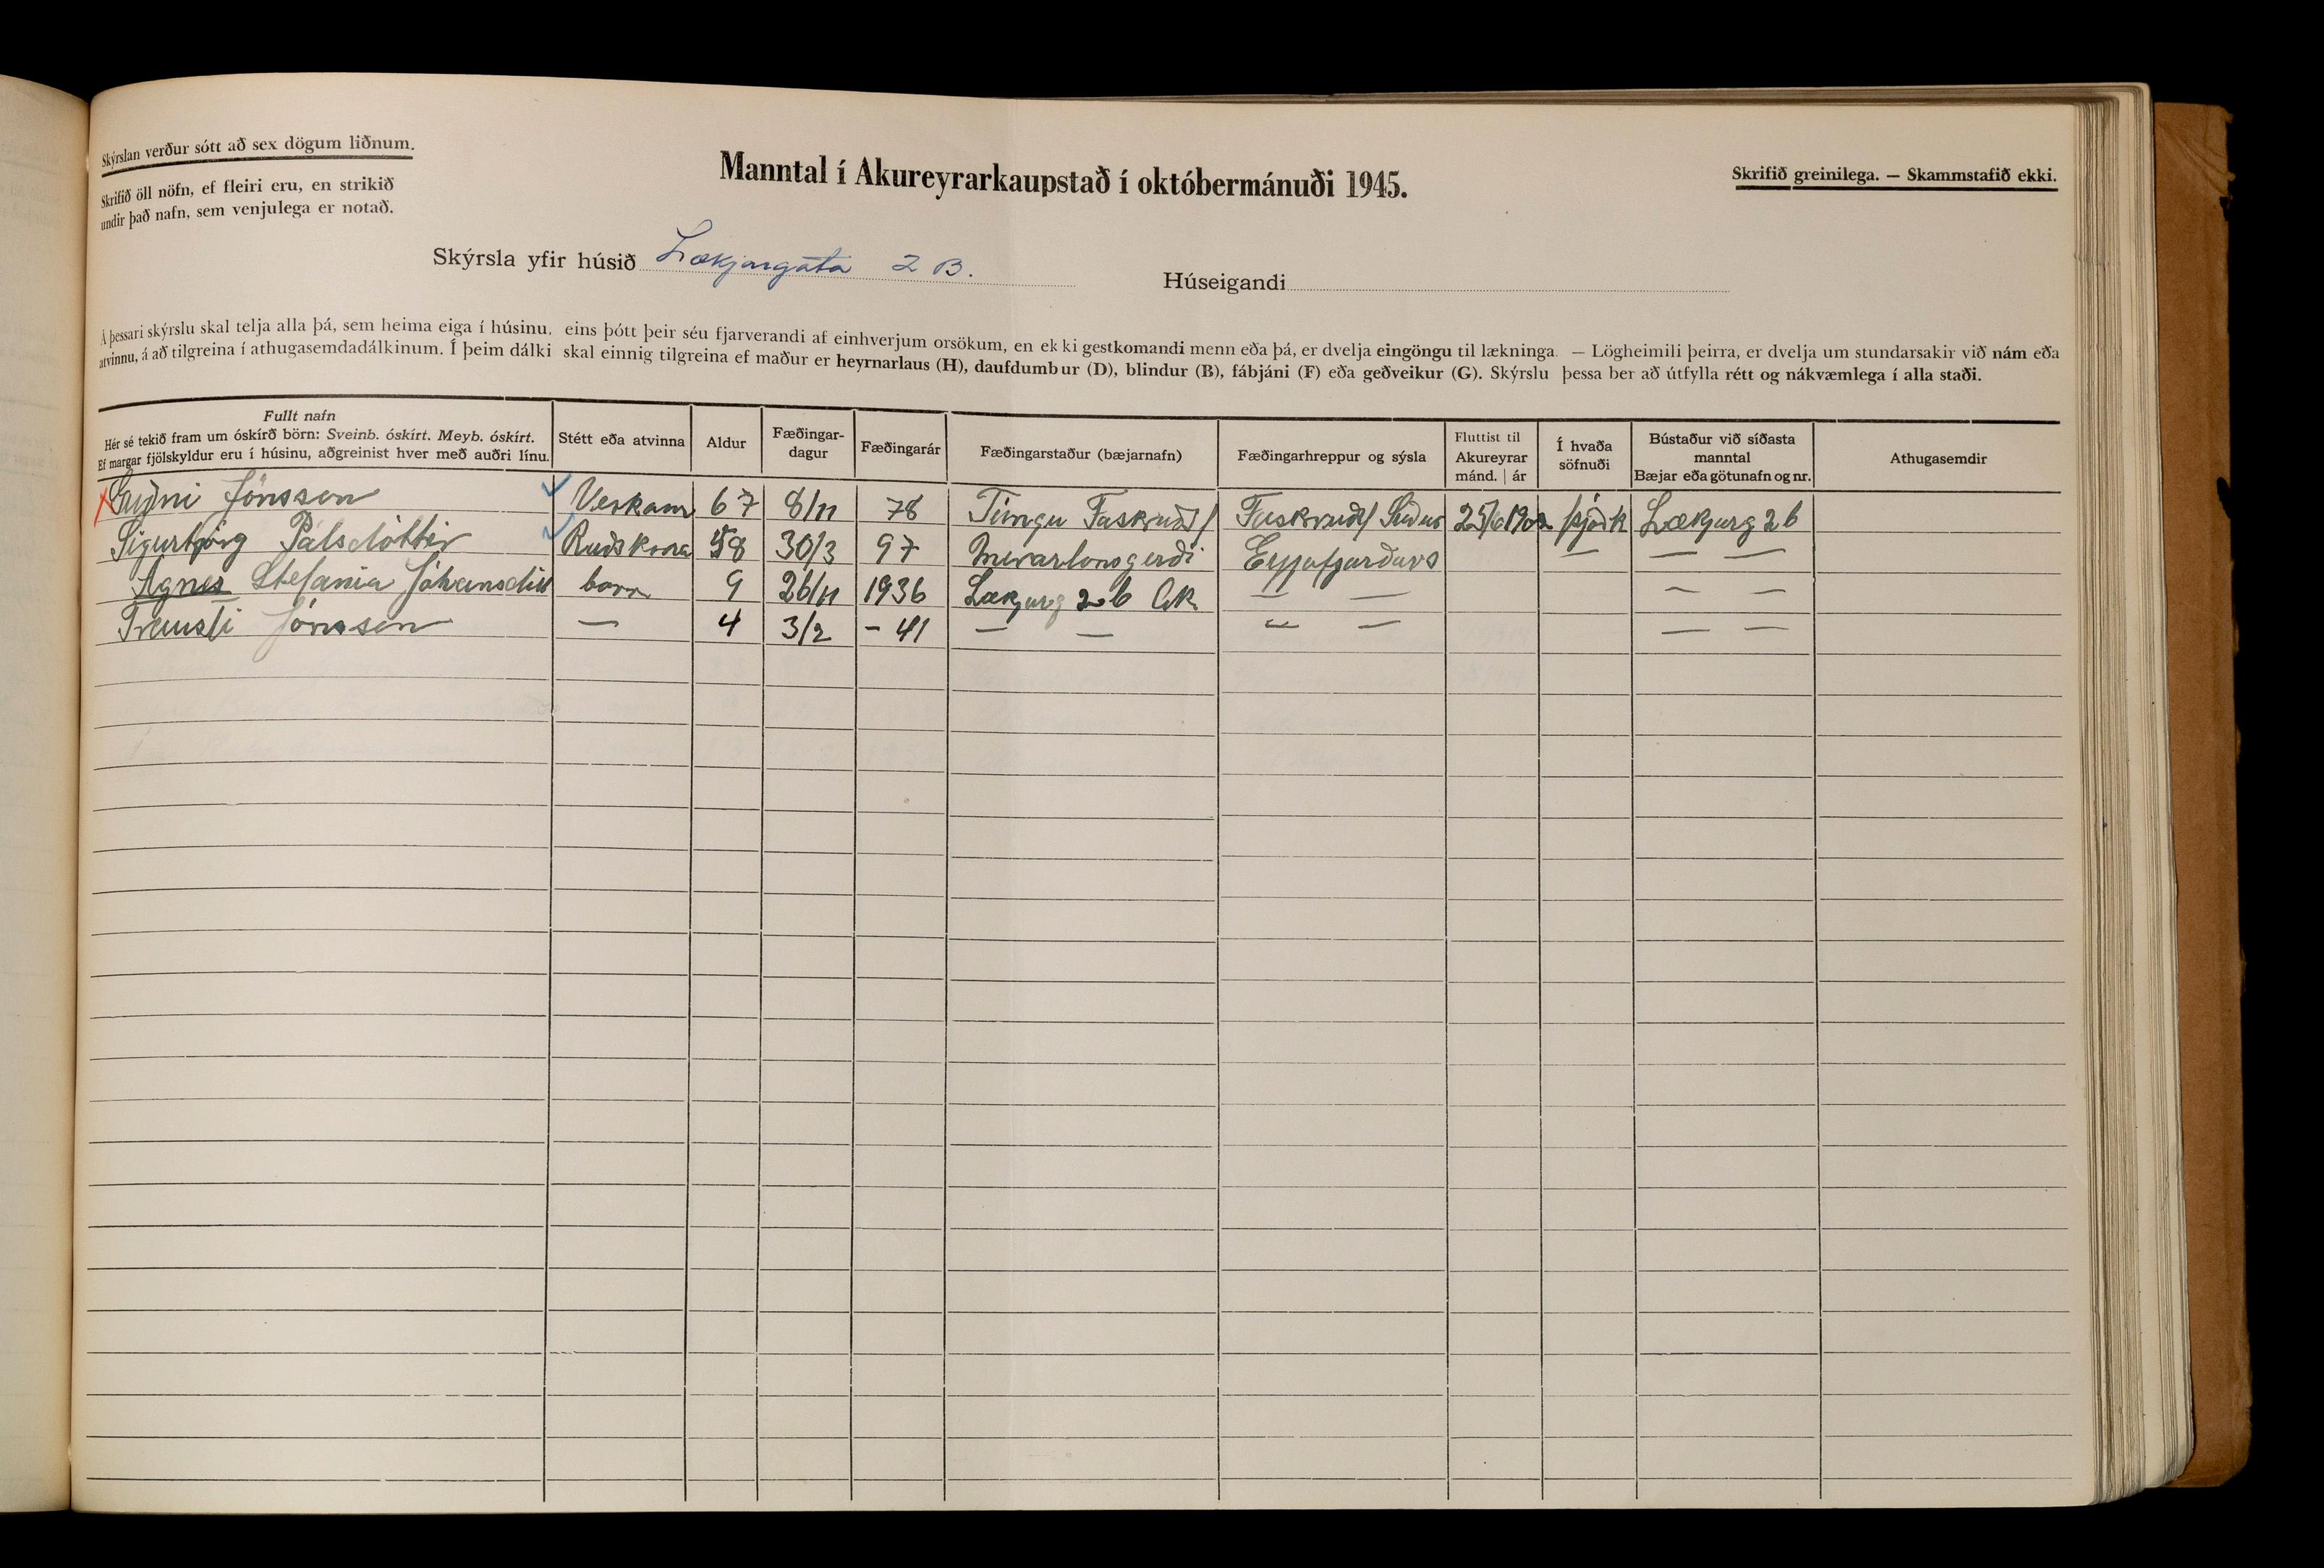 Skýrslan verður sótt að sex dögum liðnum.
Skrifið öll nöfn, ef fleiri eru, en strikið
undir það nafn, sem venjulega er notað.
Manntal í Akureyrarkaupstað í októbermánuði 1945.
Skrifið greinilega. — Skammstafið ekki.
Skýrsla yfir húsið Lækjargata 2 B.
Húseigandi
Á þessari skýrslu skal telja alla þá, sem heima eiga í húsinu, eins þótt þeir séu fjarverandi af einhverjum orsökum, en ekki gestkomandi menn eða þá, er dvelja eingöngu til lækninga. — Lögheimili þeirra, er dvelja um stundarsakir við nám eða
atvinnu, á að tilgreina í athugasemdadálkinum. Í þeim dálki skal einnig tilgreina ef maður er heyrnarlaus (H), daufdumbur (D), blindur (B), fábjáni (F) eða geðveikur (G). Skýrslu þessa ber að útfylla rétt og nákvæmlega í alla staði.
Fullt nafn
Hér sé tekið fram um óskírð börn: Sveinb. óskírt. Meyb. óskírt.
Ef margar fjölskyldur eru í húsinu, aðgreinist hver með auðri línu.
Stétt eða atvinna
Aldur
Fæðingar-
dagur
Fæðingarár
Fæðingarstaður (bæjarnafn)
Fæðingarhreppur og sýsla
Fluttist til
Akureyrar
mánd. | ár
Í hvaða
söfnuði
Bústaður við síðasta
manntal
Bæjar eða götunafn og nr.
Athugasemdir
Guðni Jónsson Verkam 67 8/11 78 Tungu Faskruðf Faskruðf Suður þjóðk Lækjarg 2b
Sigurbjörg Pálsdóttir Raðskona 58 30/3 97 Eyjafjarðars — — —
Agnes Stefania Jóhansdótt barn 9 26/11 1936 Lækjarg 2b Ak — — — —
Trausti Jónsson — 4 3/2 - 41 — — — — — —